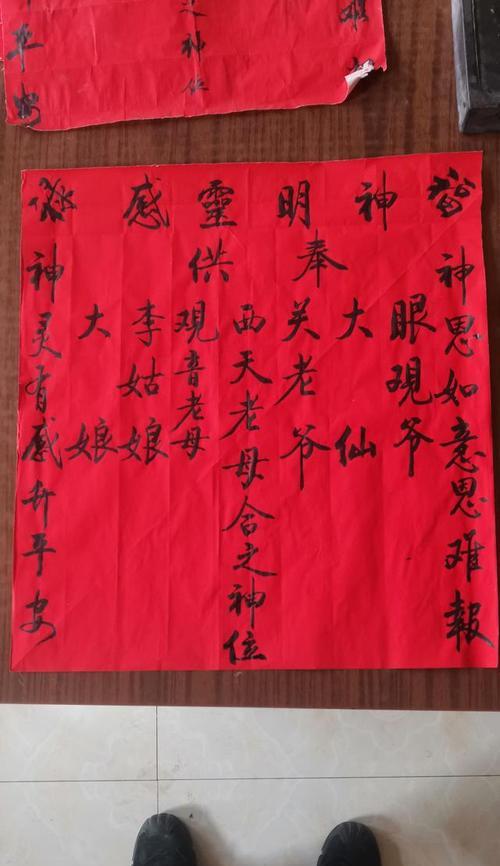 平安
之神位
神明靈感
奉供
神恩如意恩难報
眼現爷
大仙
关老爷
西天老母合之神位
观音老母
李姑娘
大娘
神灵有感升平安